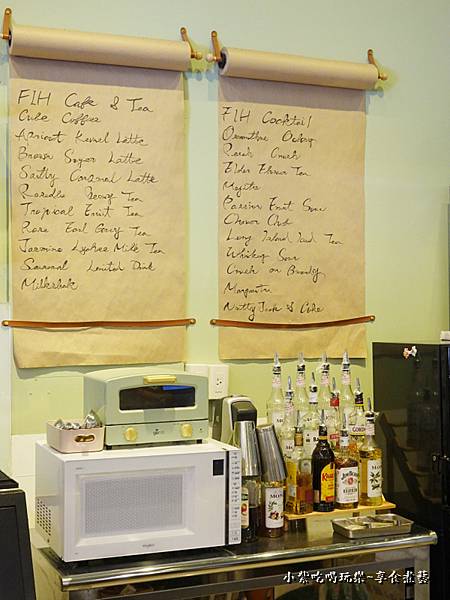 FIH Cafe & Tea
Cube Coffee
Apricot Kernel Latte
Brown Sugar Latte
Salty Caramel Latte
Tea
Tropical Fruit Tea
Rose Earl Grey Tea
Jasmine Lychee Milk Tea
Seasonal Limited Drink
Milkshake
FIH Cocktail
Osmanthus Oolong
Peach Crush
Elder Flower Tea
Mojito
Passion Fruit Sour
Long Island Iced Tea
Whiskey Sour
Crush on Brandy
Margarita
Jack & Coke
MONIN
JIM BEAM
小紫吃喝玩樂~享食煮藝